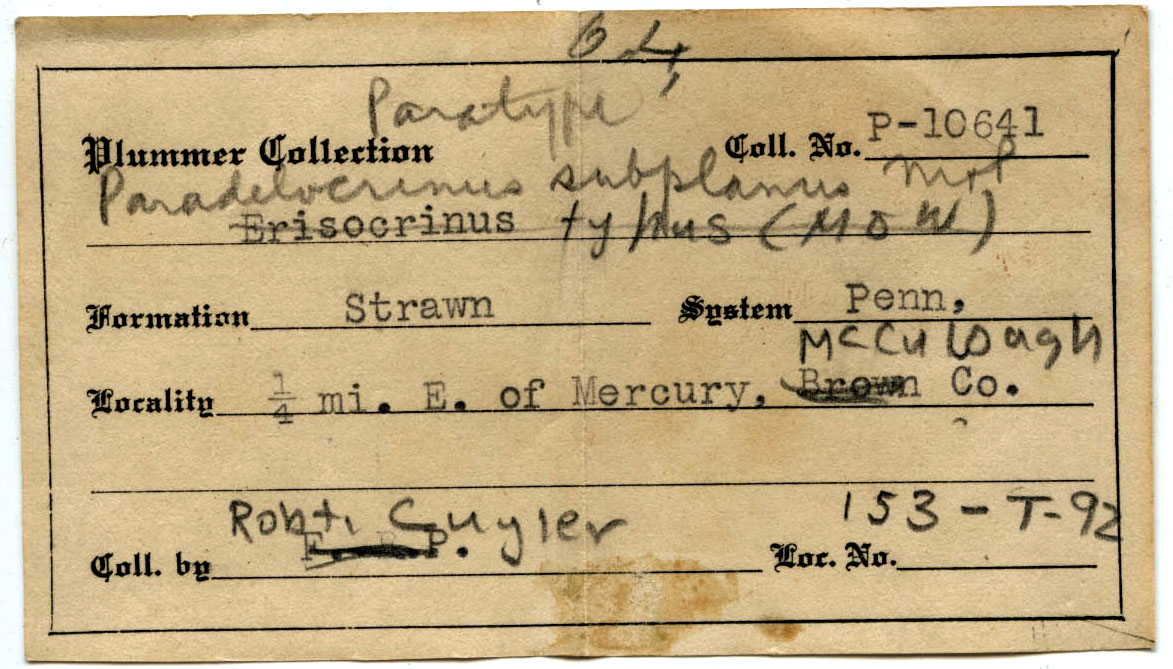 Paratype
Plummer Collection Coll. No. P-10641
Paradelocrinus subplanus M+P
Erisocrinus typus (M & W)
Formation Strawn System Penn,
McCullough
Locality 1/4 mi. E. of Mercury, Brown Co.
Robt. Cuyler 153-T-92
Coll. by F. B. P. Loc. No.